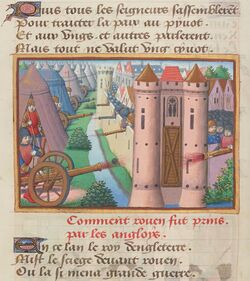 Puis tous les seigneurs sassemblerēt
Pour traicter la paix au pyuot.
Et aux ungs et autres parlerent.
Mais tout ne valut ung cyuot.
Comment rouen fut prins
par les angloys
En ce lan le roy dengleterre.
Mist le siege deuant rouen.
Ou la si mena grande guerre.